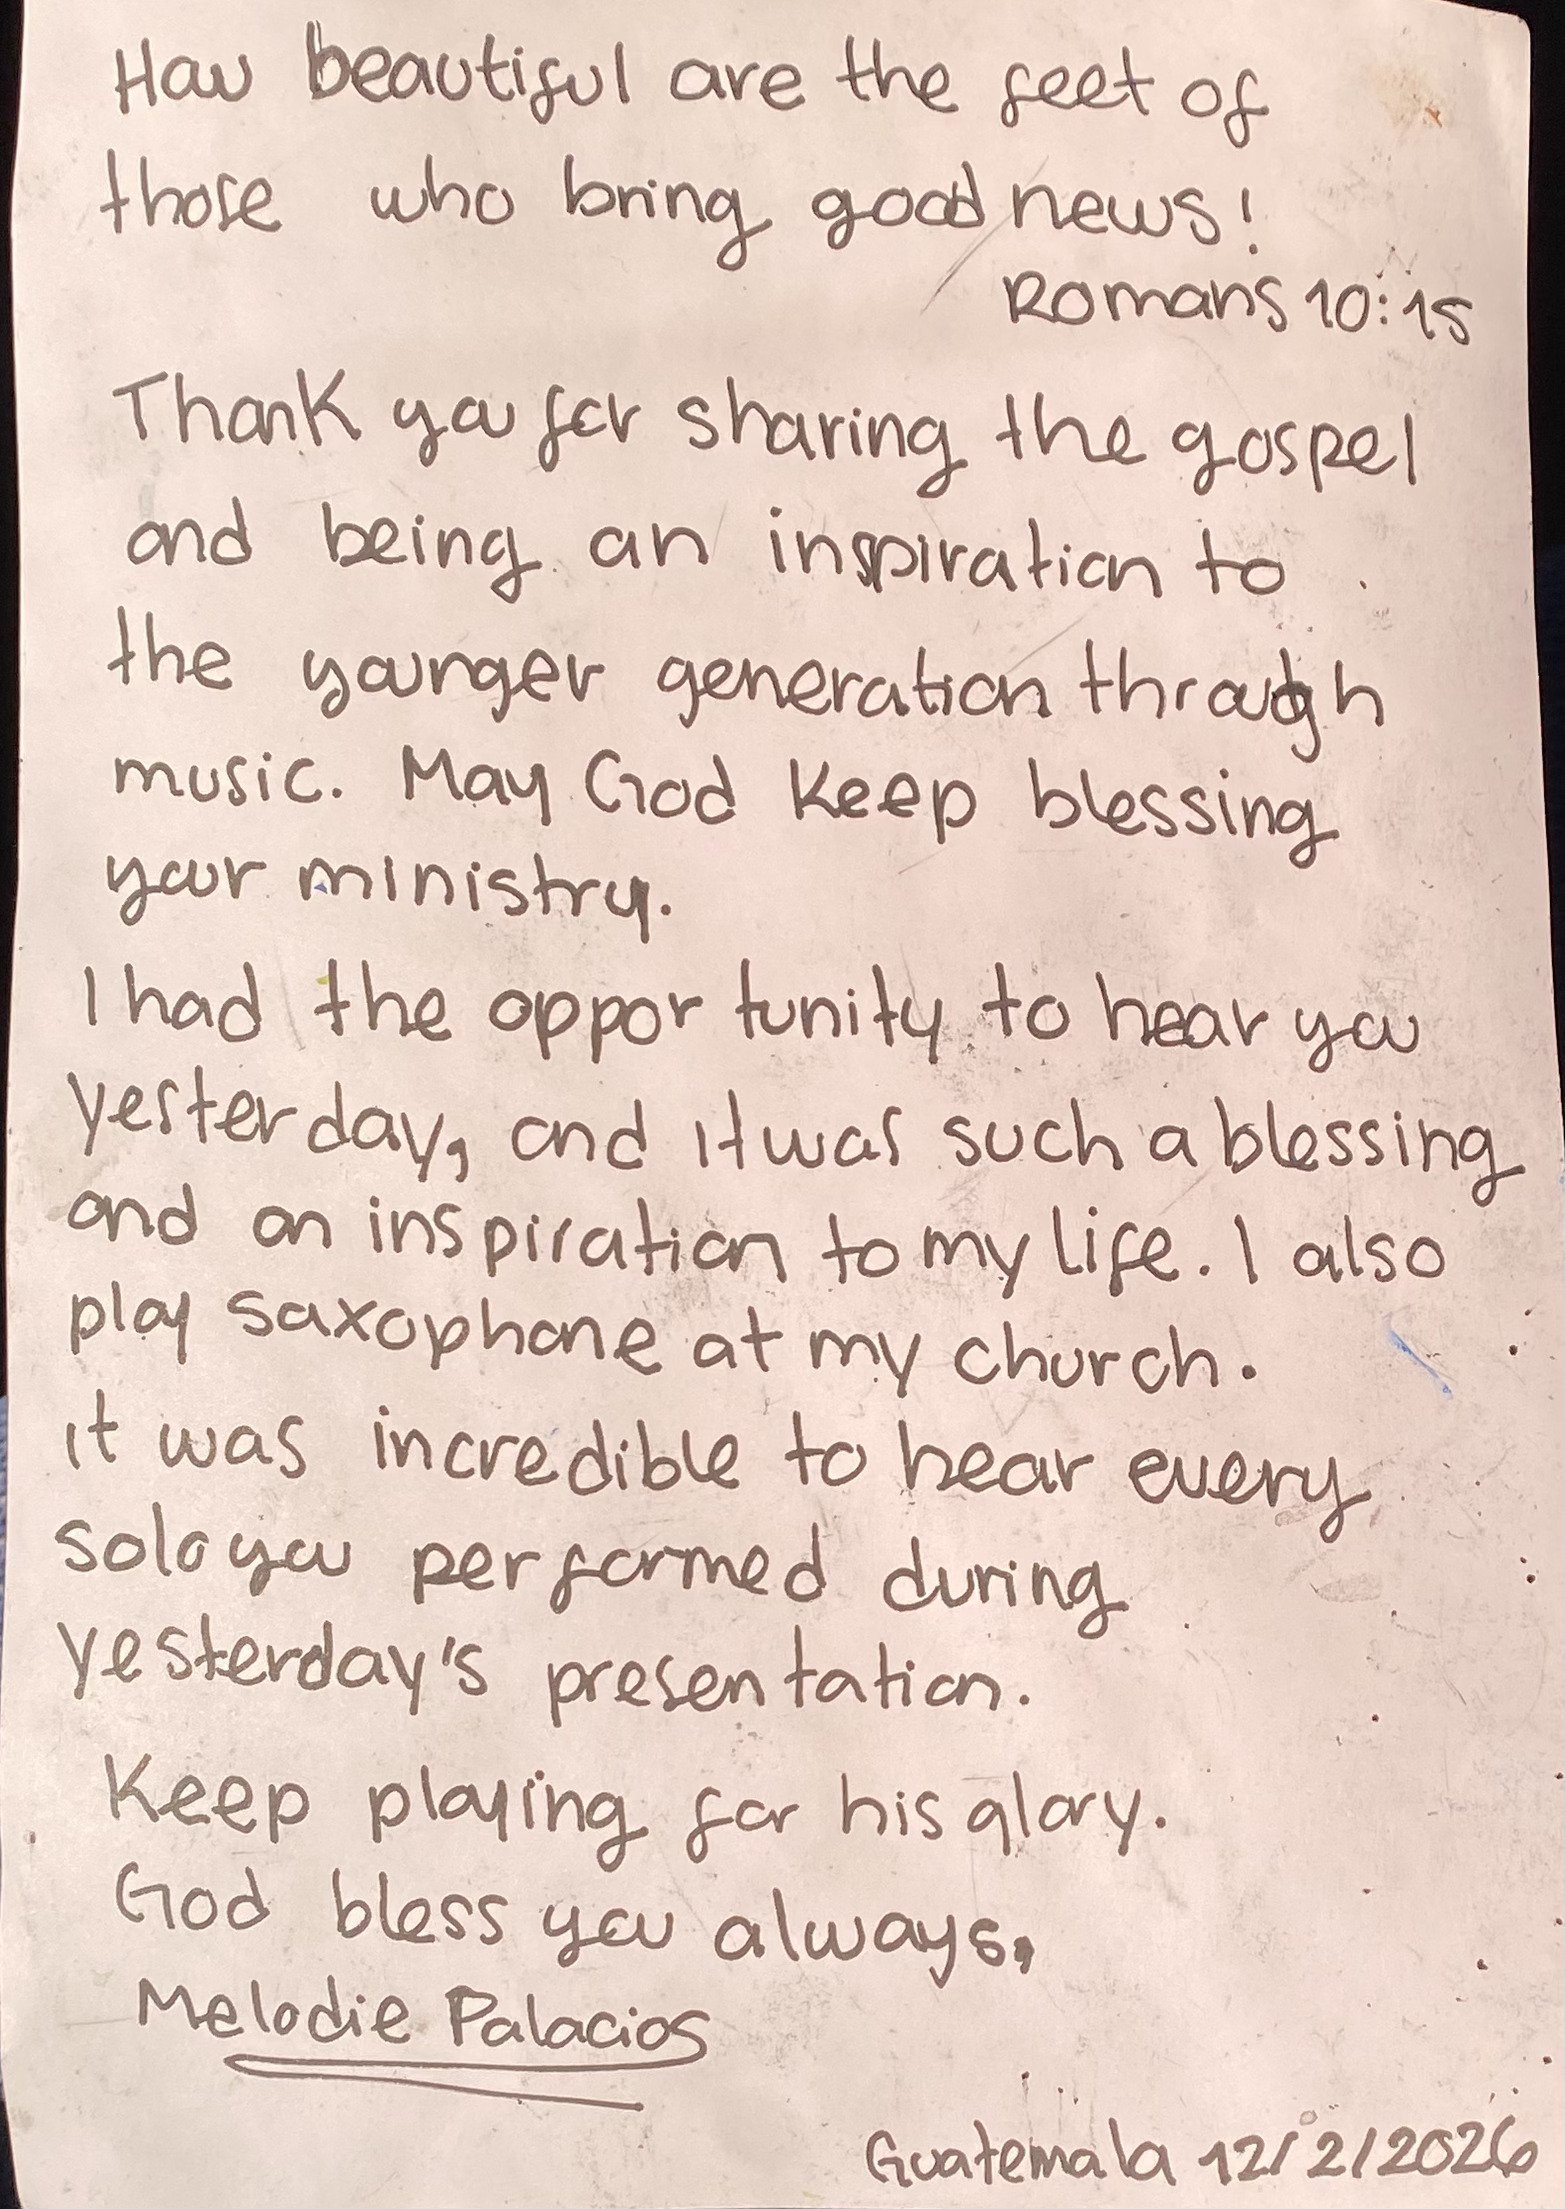 How beautiful are the feet of
those who bring good news!
Romans 10:15
Thank you for sharing the gospel
and being an inspiration to
the younger generation through
music. May God keep blessing
your ministry.
I had the opportunity to hear you
yesterday, and it was such a blessing
and an inspiration to my life. I also
play saxophone at my church.
it was incredible to hear every
solo you performed during
yesterday's presentation.
Keep playing for his glory.
God bless you always,
Melodie Palacios
Guatemala 12/2/2026